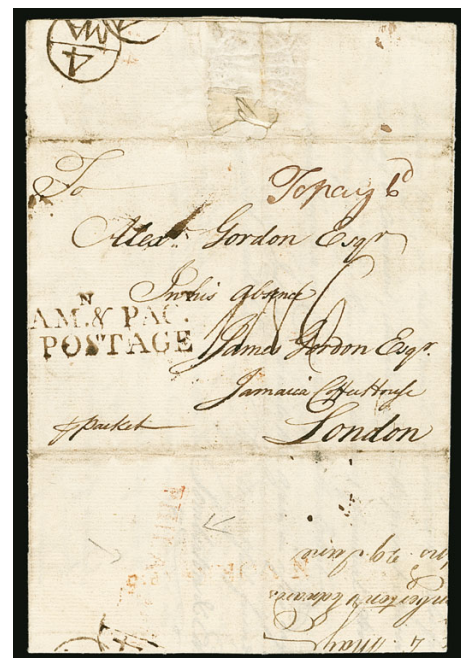 4
MA
To
To pay 6d
Alexr. Gordon Esqr
In his absence
N
AM. & PAC.
POSTAGE
James Gordon Esqr.
Jamaica Coffee House
p packet
London
PHILA
4 May